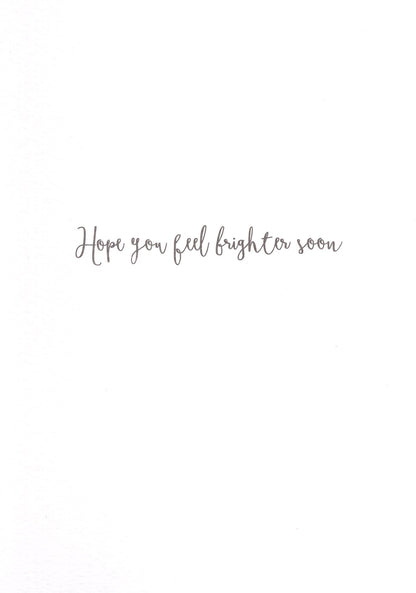 Hope you feel brighter soon